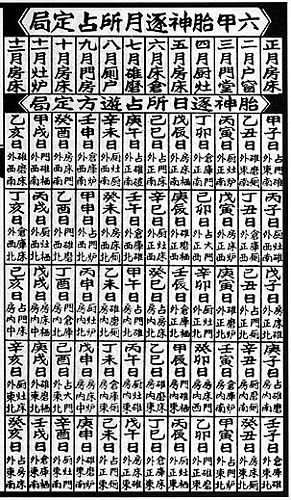 六甲胎神逐月所占定局
正月房床
二月户窗
三月門堂
四月厨灶
五月房床
六月床倉
七月碓磨
八月厠户
九月門房
十月房床
十一月灶炉
十二月房床
胎神逐日所占遊方定局
甲子日占門碓外東南
乙丑日碓磨厠外東南
丙寅日厨灶炉外正南
丁卯日倉庫門外正南
戊辰日房床栖外正南
己巳日占門床外正南
庚午日占碓磨外正南
辛未日厨灶厠外西南
壬申日倉庫炉外西南
癸酉日房床門外西南
甲戌日門碓栖外西南
乙亥日碓磨床外西南
丙子日厨灶碓外西南
丁丑日倉庫厠外正西
戊寅日房床炉外正西
己卯日占大門外正西
庚辰日碓磨栖外正西
辛巳日厨灶床外正西
壬午日倉庫碓外西北
癸未日房床厠外西北
甲申日占門炉外西北
乙酉日碓磨門外西北
丙戌日厨灶栖外西北
丁亥日倉庫床外西北
戊子日房床碓外正北
己丑日占門厠外正北
庚寅日碓磨炉外正北
辛卯日厨灶門外正北
壬辰日倉庫栖外正北
癸巳日占房床房内北
甲午日占門碓房内北
乙未日碓磨厠房内北
丙申日厨灶炉房内北
丁酉日倉庫門房内北
戊戌日房床栖房内中
己亥日占門床房内中
庚子日占碓磨房内南
辛丑日厨灶厠房内南
壬寅日倉庫炉房内南
癸卯日房床門房内南
甲辰日門鷄栖房内東
乙巳日碓磨床房内東
丙午日厨灶碓房内東
丁未日倉庫厠房内東
戊申日房床炉房内中
己酉日占大門外東北
庚戌日碓磨栖外東北
辛亥日厨灶床外東北
壬子日倉庫碓外東北
癸丑日房床厠外東北
甲寅日占門炉外東北
乙卯日碓磨門外正東
丙辰日厨灶栖外正東
丁巳日倉庫床外正東
戊午日房床碓外正東
己未日占門厠外正東
庚申日碓磨炉外東南
辛酉日厨灶門外東南
壬戌日倉庫栖外東南
癸亥日占房床外東南